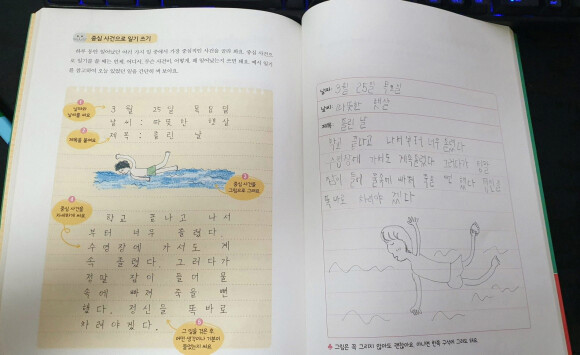 중심 사건으로 일기 쓰기
하루 동안 일어났던 여러 가지 일 중에서 가장 중심적인 사건을 골라 봐요. 중심 사건으
로 일기를 쓸 때는 언제, 어디서, 무슨 사건이, 어떻게, 왜 일어났는지 쓰면 돼요. 예시 일기
를 참고하여 오늘 있었던 일을 간단히 써 보아요.
1
날짜와
날씨를 써요.
3월 25일 목요일
날씨: 따뜻한 햇살
2
제목을 붙여요.
제목: 졸린 날
3
중심 사건을
그림으로 그려요.
4
중심 사건을
자세하게 써요.
학교 끝나고 나서
부터 너무 졸렸다.
수영장에 가서도 계
속 졸렸다. 그러다가
정말 잠이 들어 물
속에 빠져 죽을 뻔
했다. 정신을 똑바로
차려야겠다.
5
그 일을 겪은 후
어떤 생각이나 기분이
들었는지 써요.
날짜: 3월 25일 목요일
날씨: 따뜻한 햇살
제목: 졸린 날
학교 끝나고 나서부터 너무 졸렸다
수영장에 가서도 계속 졸렸다 그러다가 정말
잠이 들어 물속에 빠져 죽을 뻔 했다 정신을
똑바로 차려야 겠다
그림은 꼭 그리지 않아도 괜찮아요.